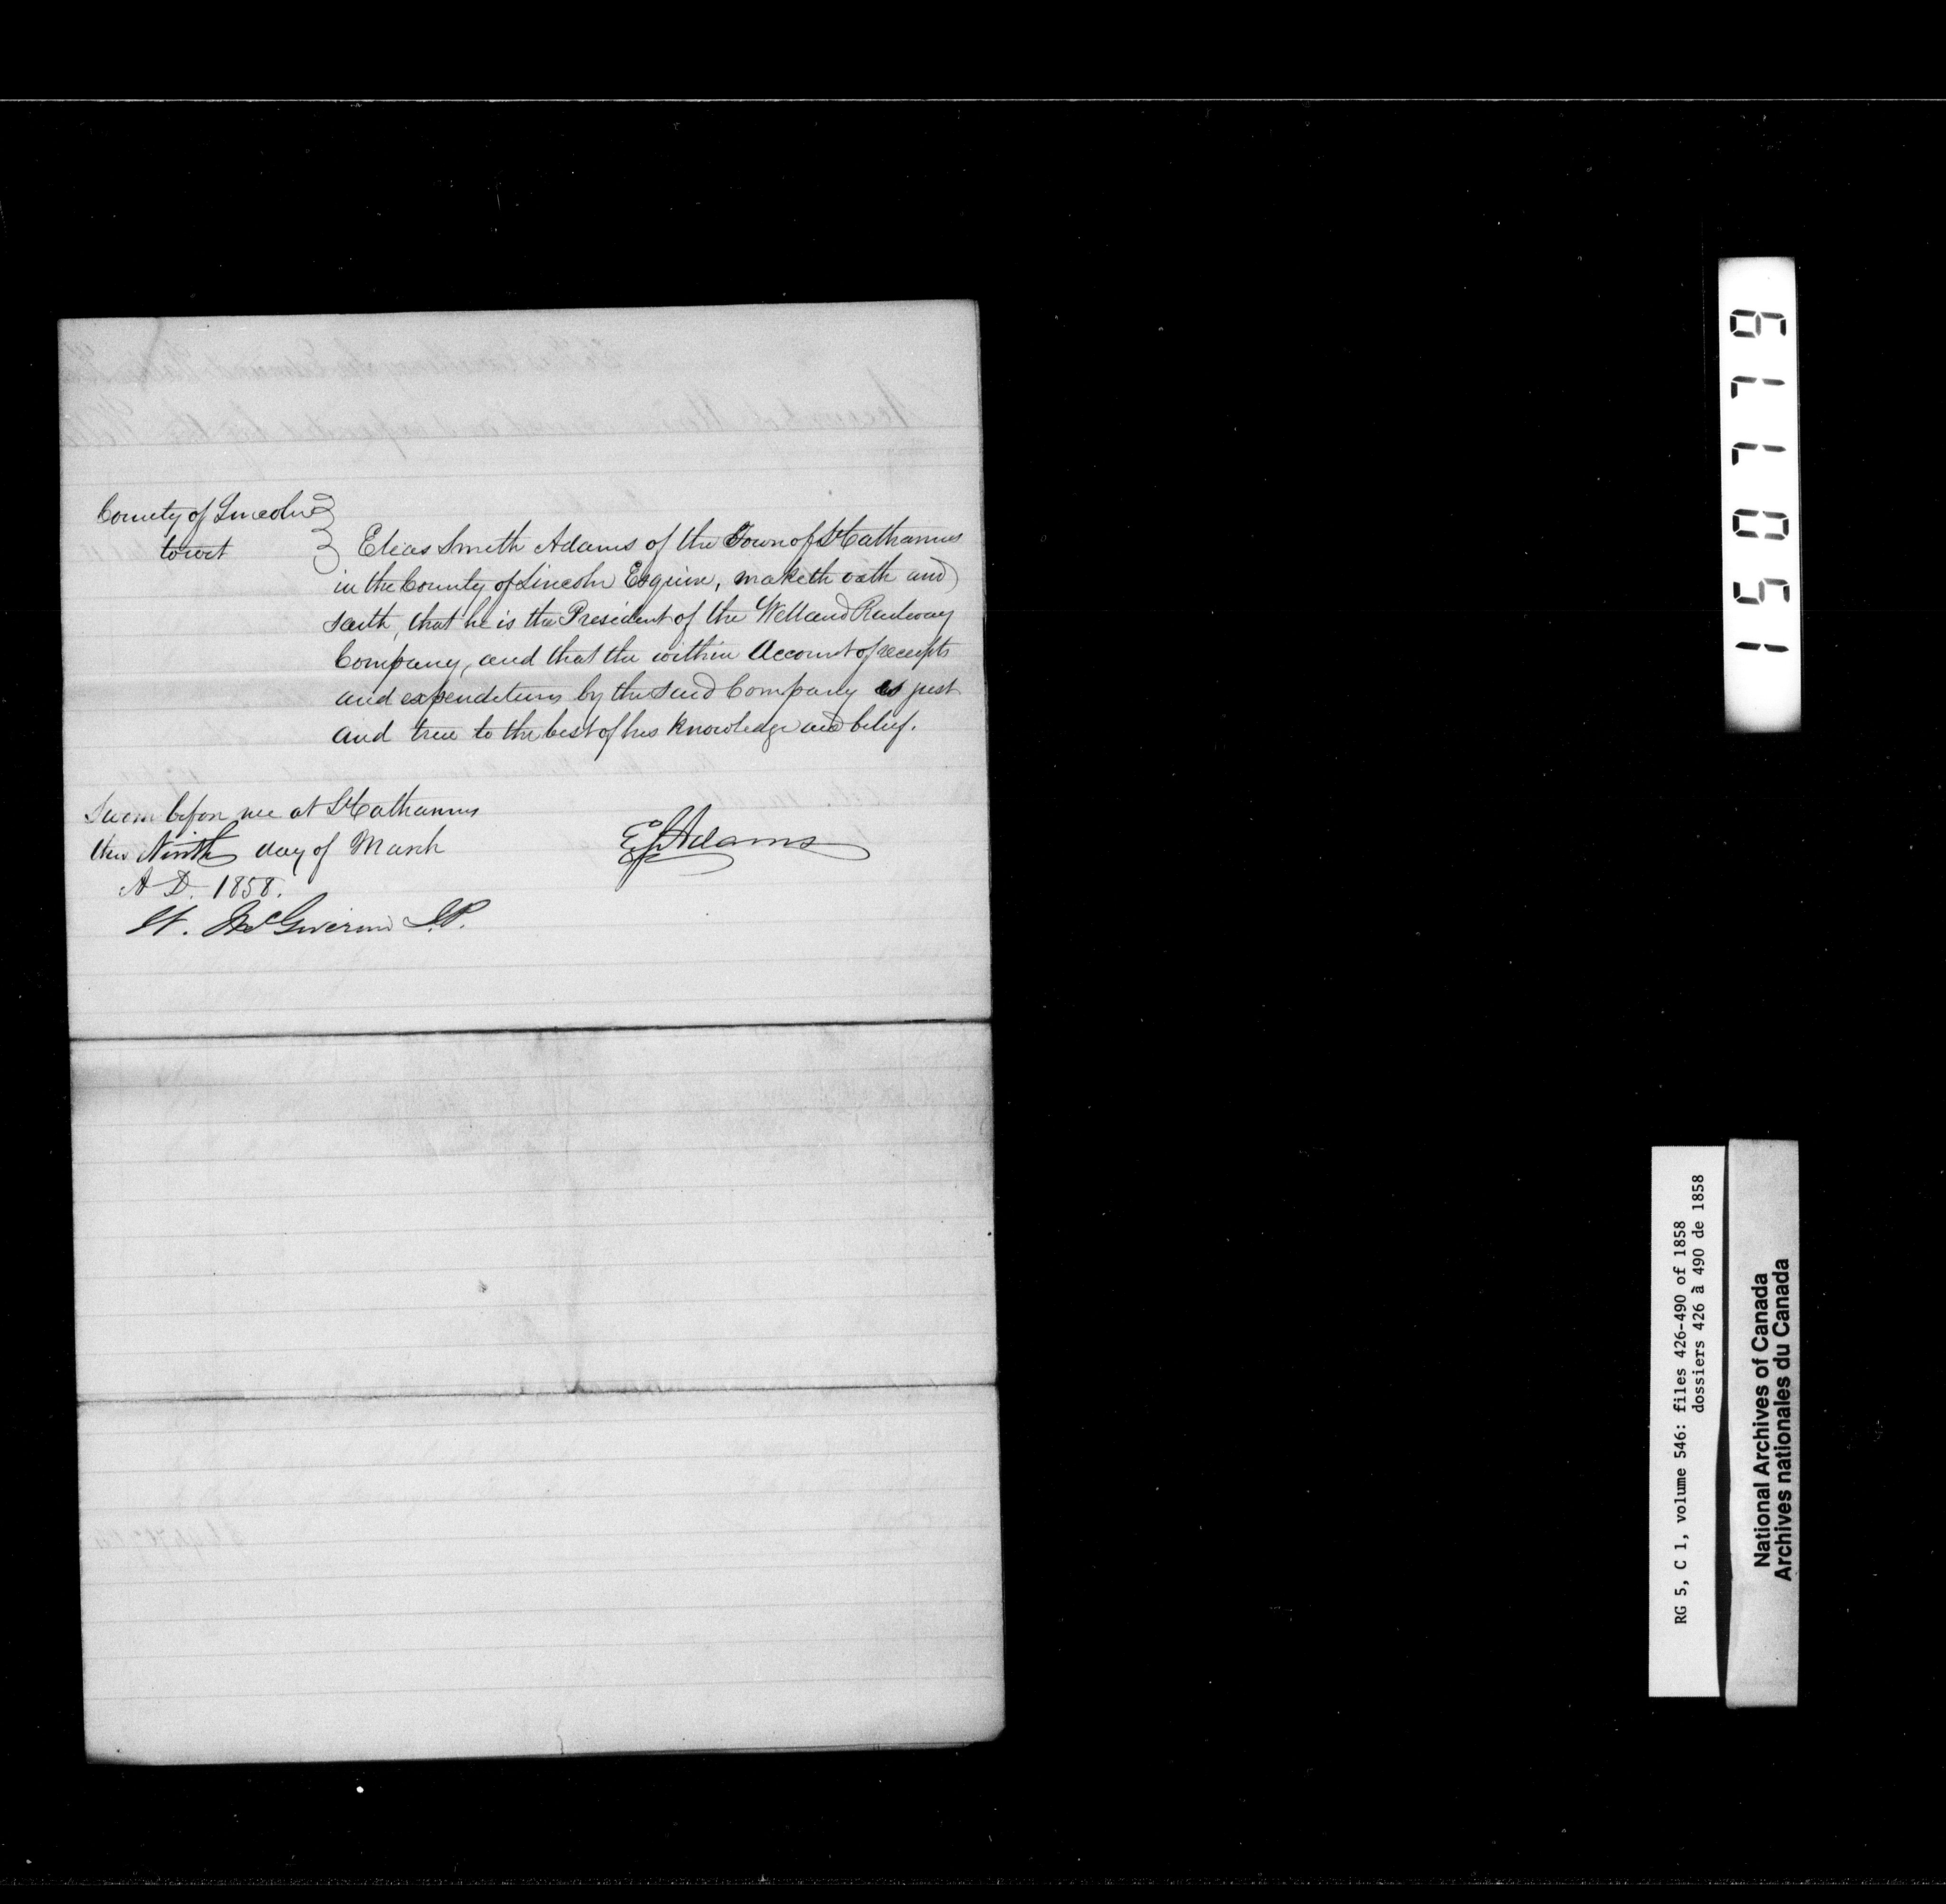 County of Lincoln
to wit
Elias Smith Adams of the Town of St Catharines
in the County of Lincoln Esquire, maketh oath and
saith, that he is the President of the Welland Railway
Company, and that the within Account of receipts
and expenditures by the said Company is just
and true to the best of his knowledge and belief.
Sworn before me at St Catharines
this Ninth day of March
A D. 1858.
E S Adams
W. McGiverin J.P.
150719
RG 5, C 1, volume 546: files 426-490 of 1858
dossiers 426 à 490 de 1858
National Archives of Canada
Archives nationales du Canada